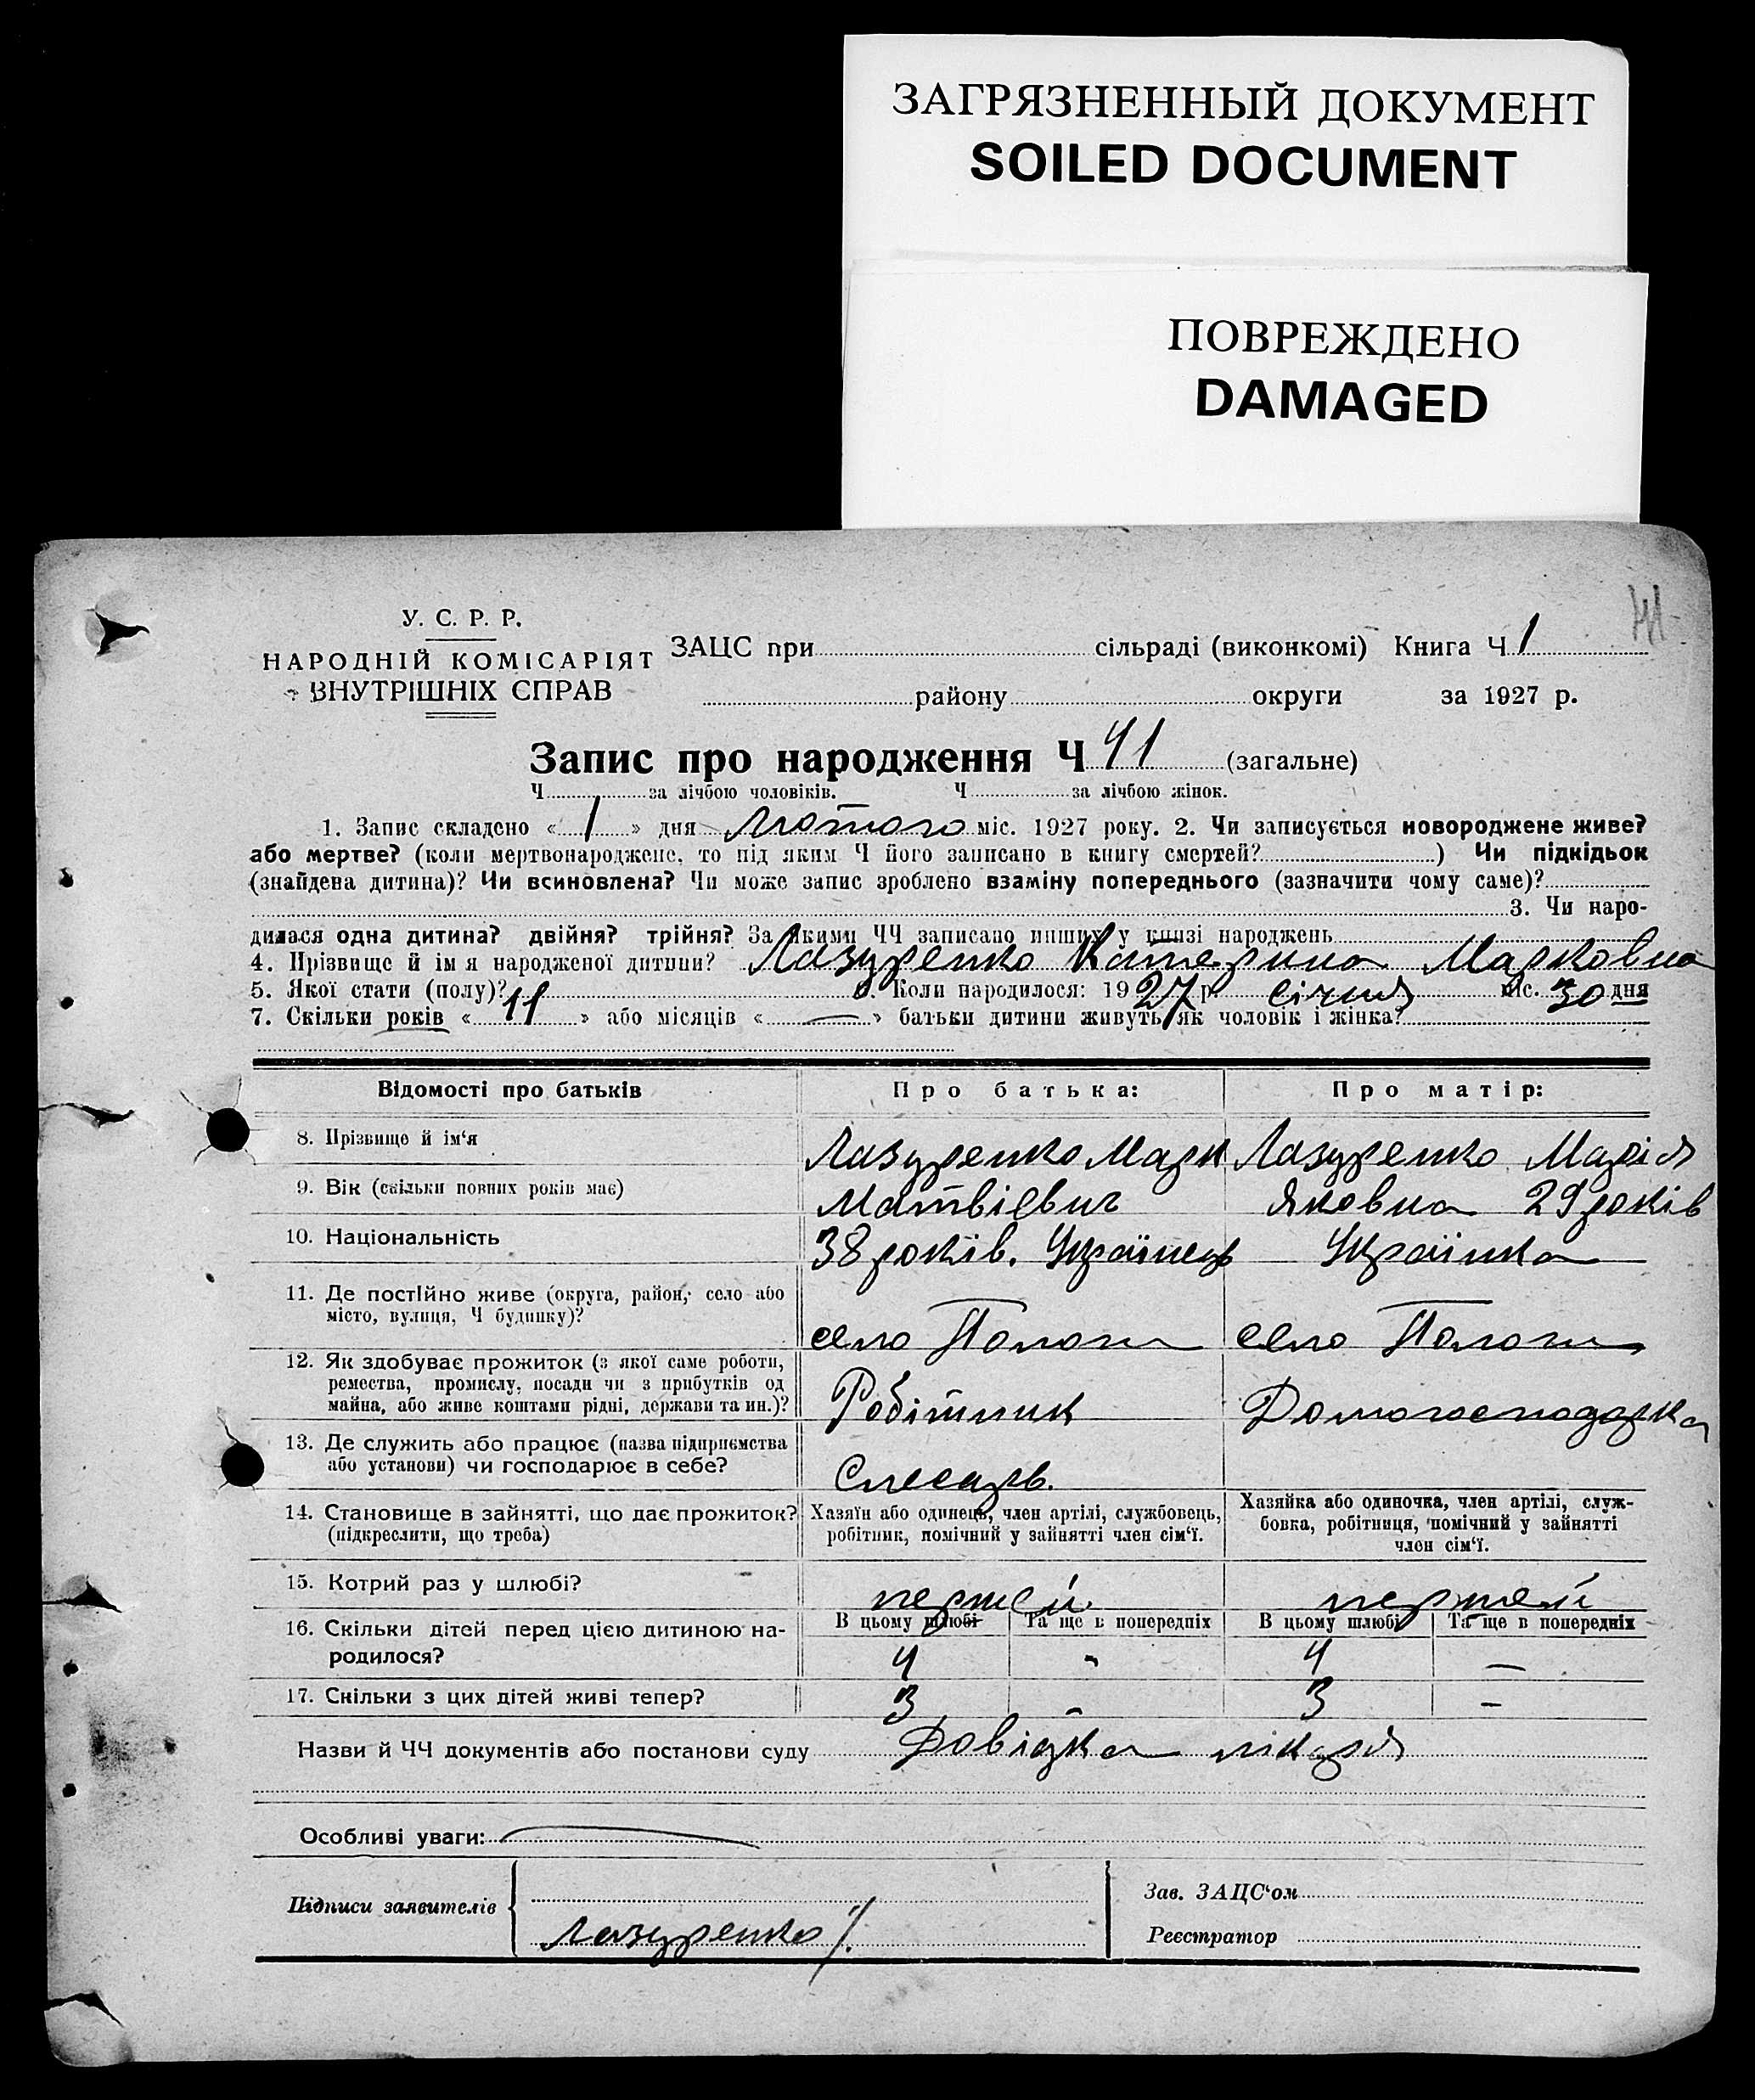 ЗАГРЯЗНЕННЫЙ ДОКУМЕНТ
SOILED DOCUMENT
ПОВРЕЖДЕНО
DAMAGED
41
У. С. Р. Р.
НАРОДНІЙ КОМІСАРІЯТ
ВНУТРІШНІХ СПРАВ
ЗАЦС при сільраді (виконкомі) Книга Ч 1
району округи за 1927 р.
Запис про народження Ч 41 (загальне)
Ч за лічбою чоловіків. Ч за лічбою жінок.
1. Запис складено « 1 » дня Лютого міс. 1927 року. 2. Чи записується новороджене живе?
або мертве? (коли мертвонароджене, то під яким Ч його записано в книгу смертей? ) Чи підкідьок
(знайдена дитина)? Чи всиновлена? Чи може запис зроблено взаміну попереднього (зазначити чому саме)?
3. Чи наро-
дилася одна дитина? двійня? трійня? За якими ЧЧ записано инших у книзі народжень
4. Прізвище й ім я народженої дитини? Лазуренко Катерина Марковна
5. Якої стати (полу)? 6. Коли народилося: 1927 р. січня міс. 30 дня
7. Скільки років « 11 » або місяців « — » батьки дитини живуть як чоловік і жінка?
Відомості про батьків Про батька: Про матір:
8. Прізвище й ім‘я Лазуренко Марк Лазуренко Марія
9. Вік (скільки повних років має) Матвієвич Яковна 29 років
10. Національність 38 років. Українець Українка
11. Де постійно живе (округа, район, село або
місто, вулиця, Ч будинку)? село Пологи село Пологи
12. Як здобуває прожиток (з якої саме роботи,
ремества, промислу, посади чи з прибутків од
майна, або живе коштами рідні, держави та ин.)? Робітник Домогосподарка
13. Де служить або працює (назва підприємства
або установи) чи господарює в себе? Слесарь.
14. Становище в зайнятті, що дає прожиток?
(підкреслити, що треба)
Хазяїн або одинець, член артілі, службовець,
робітник, помічний у зайнятті член сім‘ї.
Хазяйка або одиночка, член артілі, служ-
бовка, робітниця, помічний у зайнятті
член сім‘ї.
15. Котрий раз у шлюбі? першей першей
В цьому шлюбі Та ще в попередніх В цьому шлюбі Та ще в попередніх
16. Скільки дітей перед цією дитиною на-
родилося? 4 - 4 —
17. Скільки з цих дітей живі тепер? 3 - 3 -
Назви й ЧЧ документів або постанови суду Довідка лікаря
Особливі уваги:
Підписи заявителів Зав. ЗАЦС‘ом
Лазуренко Реєстратор